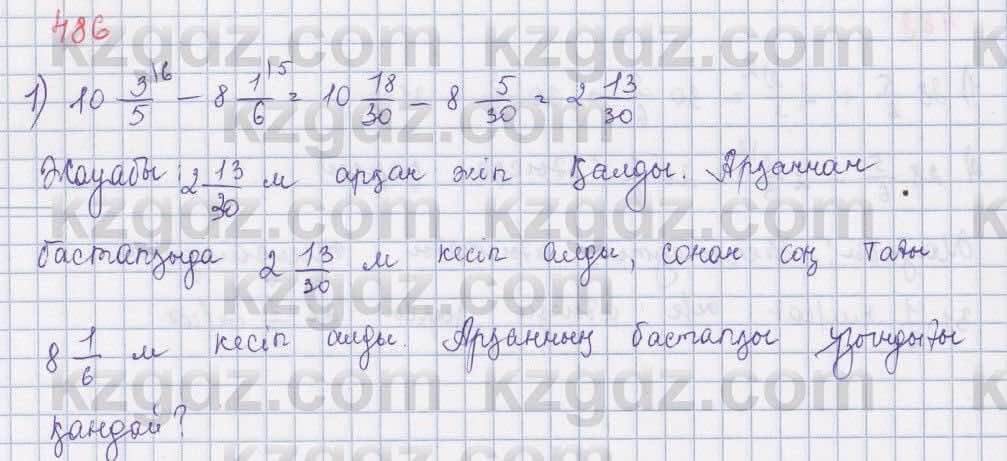 486
1) 10 3/5 |6 − 8 1/6 |5 = 10 18/30 − 8 5/30 = 2 13/30
Жауабы: 2 13/30 м арқан жіп қалды. Арқаннан
бастапқыда 2 13/30 м кесіп алды, сонан соң тағы
8 1/6 м кесіп алды. Арқанның бастапқы ұзындығы
қандай?
kzgdz.com
kzgdz.com
kzgdz.com
kzgdz.com
kzgdz.com
kzgdz.com